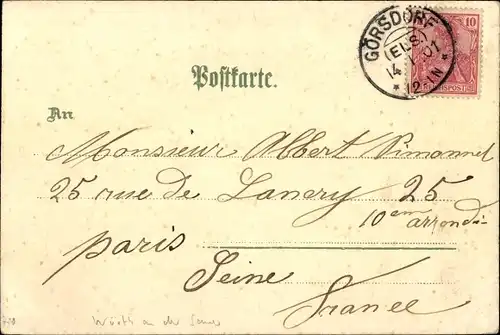 GÖRSDORF
(ELS.)
14
01
* 12-1N *
10
REICHSPOST
Postkarte.
An
Monsieur Albert Simonnel
25 rue de Lancry 25
10em arrondi-
paris
Seine
France
Wörth an der Sauer